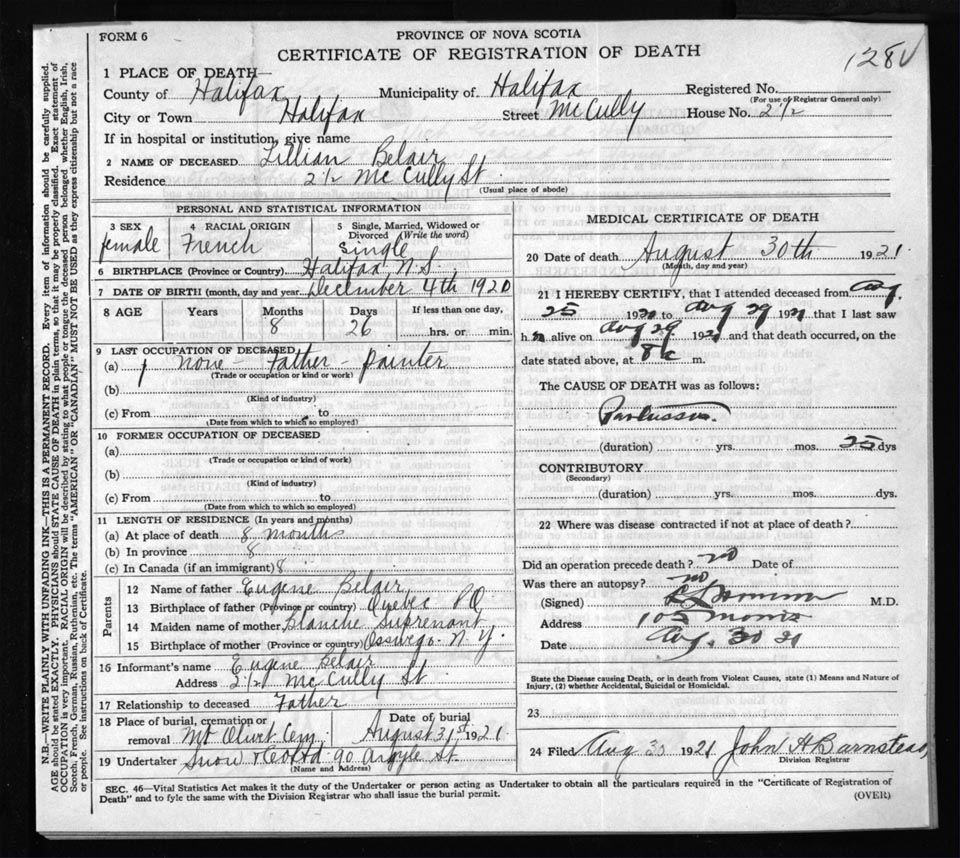 FORM 6
PROVINCE OF NOVA SCOTIA
CERTIFICATE OF REGISTRATION OF DEATH
128
1 PLACE OF DEATH—
County of Halifax Municipality of Halifax Registered No.
(For use of Registrar General only)
City or Town Halifax Street McCully House No. 2 1/2
If in hospital or institution, give name
2 NAME OF DECEASED Lillian Belair
Residence 2 1/2 McCully St
(Usual place of abode)
PERSONAL AND STATISTICAL INFORMATION
3 SEX female
4 RACIAL ORIGIN French
5 Single, Married, Widowed or Divorced (Write the word) Single
6 BIRTHPLACE (Province or Country) Halifax, N.S.
7 DATE OF BIRTH (month, day and year) December 4th 1920
8 AGE Years Months Days If less than one day,
8 26 hrs. or min.
9 LAST OCCUPATION OF DECEASED
(a) none Father - painter
(Trade or occupation or kind of work)
(b)
(Kind of industry)
(c) From to
(Date from which to which so employed)
10 FORMER OCCUPATION OF DECEASED
(a)
(Trade or occupation or kind of work)
(b)
(Kind of industry)
(c) From to
(Date from which to which so employed)
11 LENGTH OF RESIDENCE (In years and months)
(a) At place of death 8 months
(b) In province 8
(c) In Canada (if an immigrant) 8
Parents
12 Name of father Eugene Belair
13 Birthplace of father (Province or country) Quebec P.Q
14 Maiden name of mother Blanche Suprenant
15 Birthplace of mother (Province or country) Osswego. N.Y.
16 Informant's name Eugene Belair
Address 2 1/2 McCully St
17 Relationship to deceased Father
18 Place of burial, cremation or removal Mt Olivet Cem. Date of burial August 31st 1921
19 Undertaker Snow & Co Ltd 90 Argyle St.
(Name and Address)
MEDICAL CERTIFICATE OF DEATH
20 Date of death August 30th 1921
(Month, day and year)
21 I HEREBY CERTIFY, that I attended deceased from Aug.
25 1921 to Aug 29 1921 that I last saw
h alive on Aug 29 1921 and that death occurred, on the
date stated above, at 8 m.
The CAUSE OF DEATH was as follows:
Pertussis
(duration) yrs. mos. 25 dys
CONTRIBUTORY
(Secondary)
(duration) yrs. mos. dys.
22 Where was disease contracted if not at place of death?
Did an operation precede death? no Date of
Was there an autopsy? no
(Signed) M.D.
Address 105 Morris
Date Aug. 30 21
State the Disease causing Death, or in death from Violent Causes, state (1) Means and Nature of Injury, (2) whether Accidental, Suicidal or Homicidal.
23
24 Filed Aug 30 1921 John H Barnstead
Division Registrar
SEC. 46—Vital Statistics Act makes it the duty of the Undertaker or person acting as Undertaker to obtain all the particulars required in the "Certificate of Registration of
Death" and to fyle the same with the Division Registrar who shall issue the burial permit.
(OVER)
N.B.—WRITE PLAINLY WITH UNFADING INK—THIS IS A PERMANENT RECORD. Every item of information should be carefully supplied.
AGE should be stated EXACTLY. PHYSICIANS should STATE CAUSE OF DEATH in plain terms, so that it may be properly classified. Exact statement of
OCCUPATION is very important. RACIAL ORIGIN will be described by stating to what people or tongue the deceased person belonged, whether English, Irish,
Scotch, French, German, Russian, Ruthenian, etc. The terms "AMERICAN" OR "CANADIAN" MUST NOT BE USED as they express citizenship but not a race
or people. See instructions on back of Certificate.